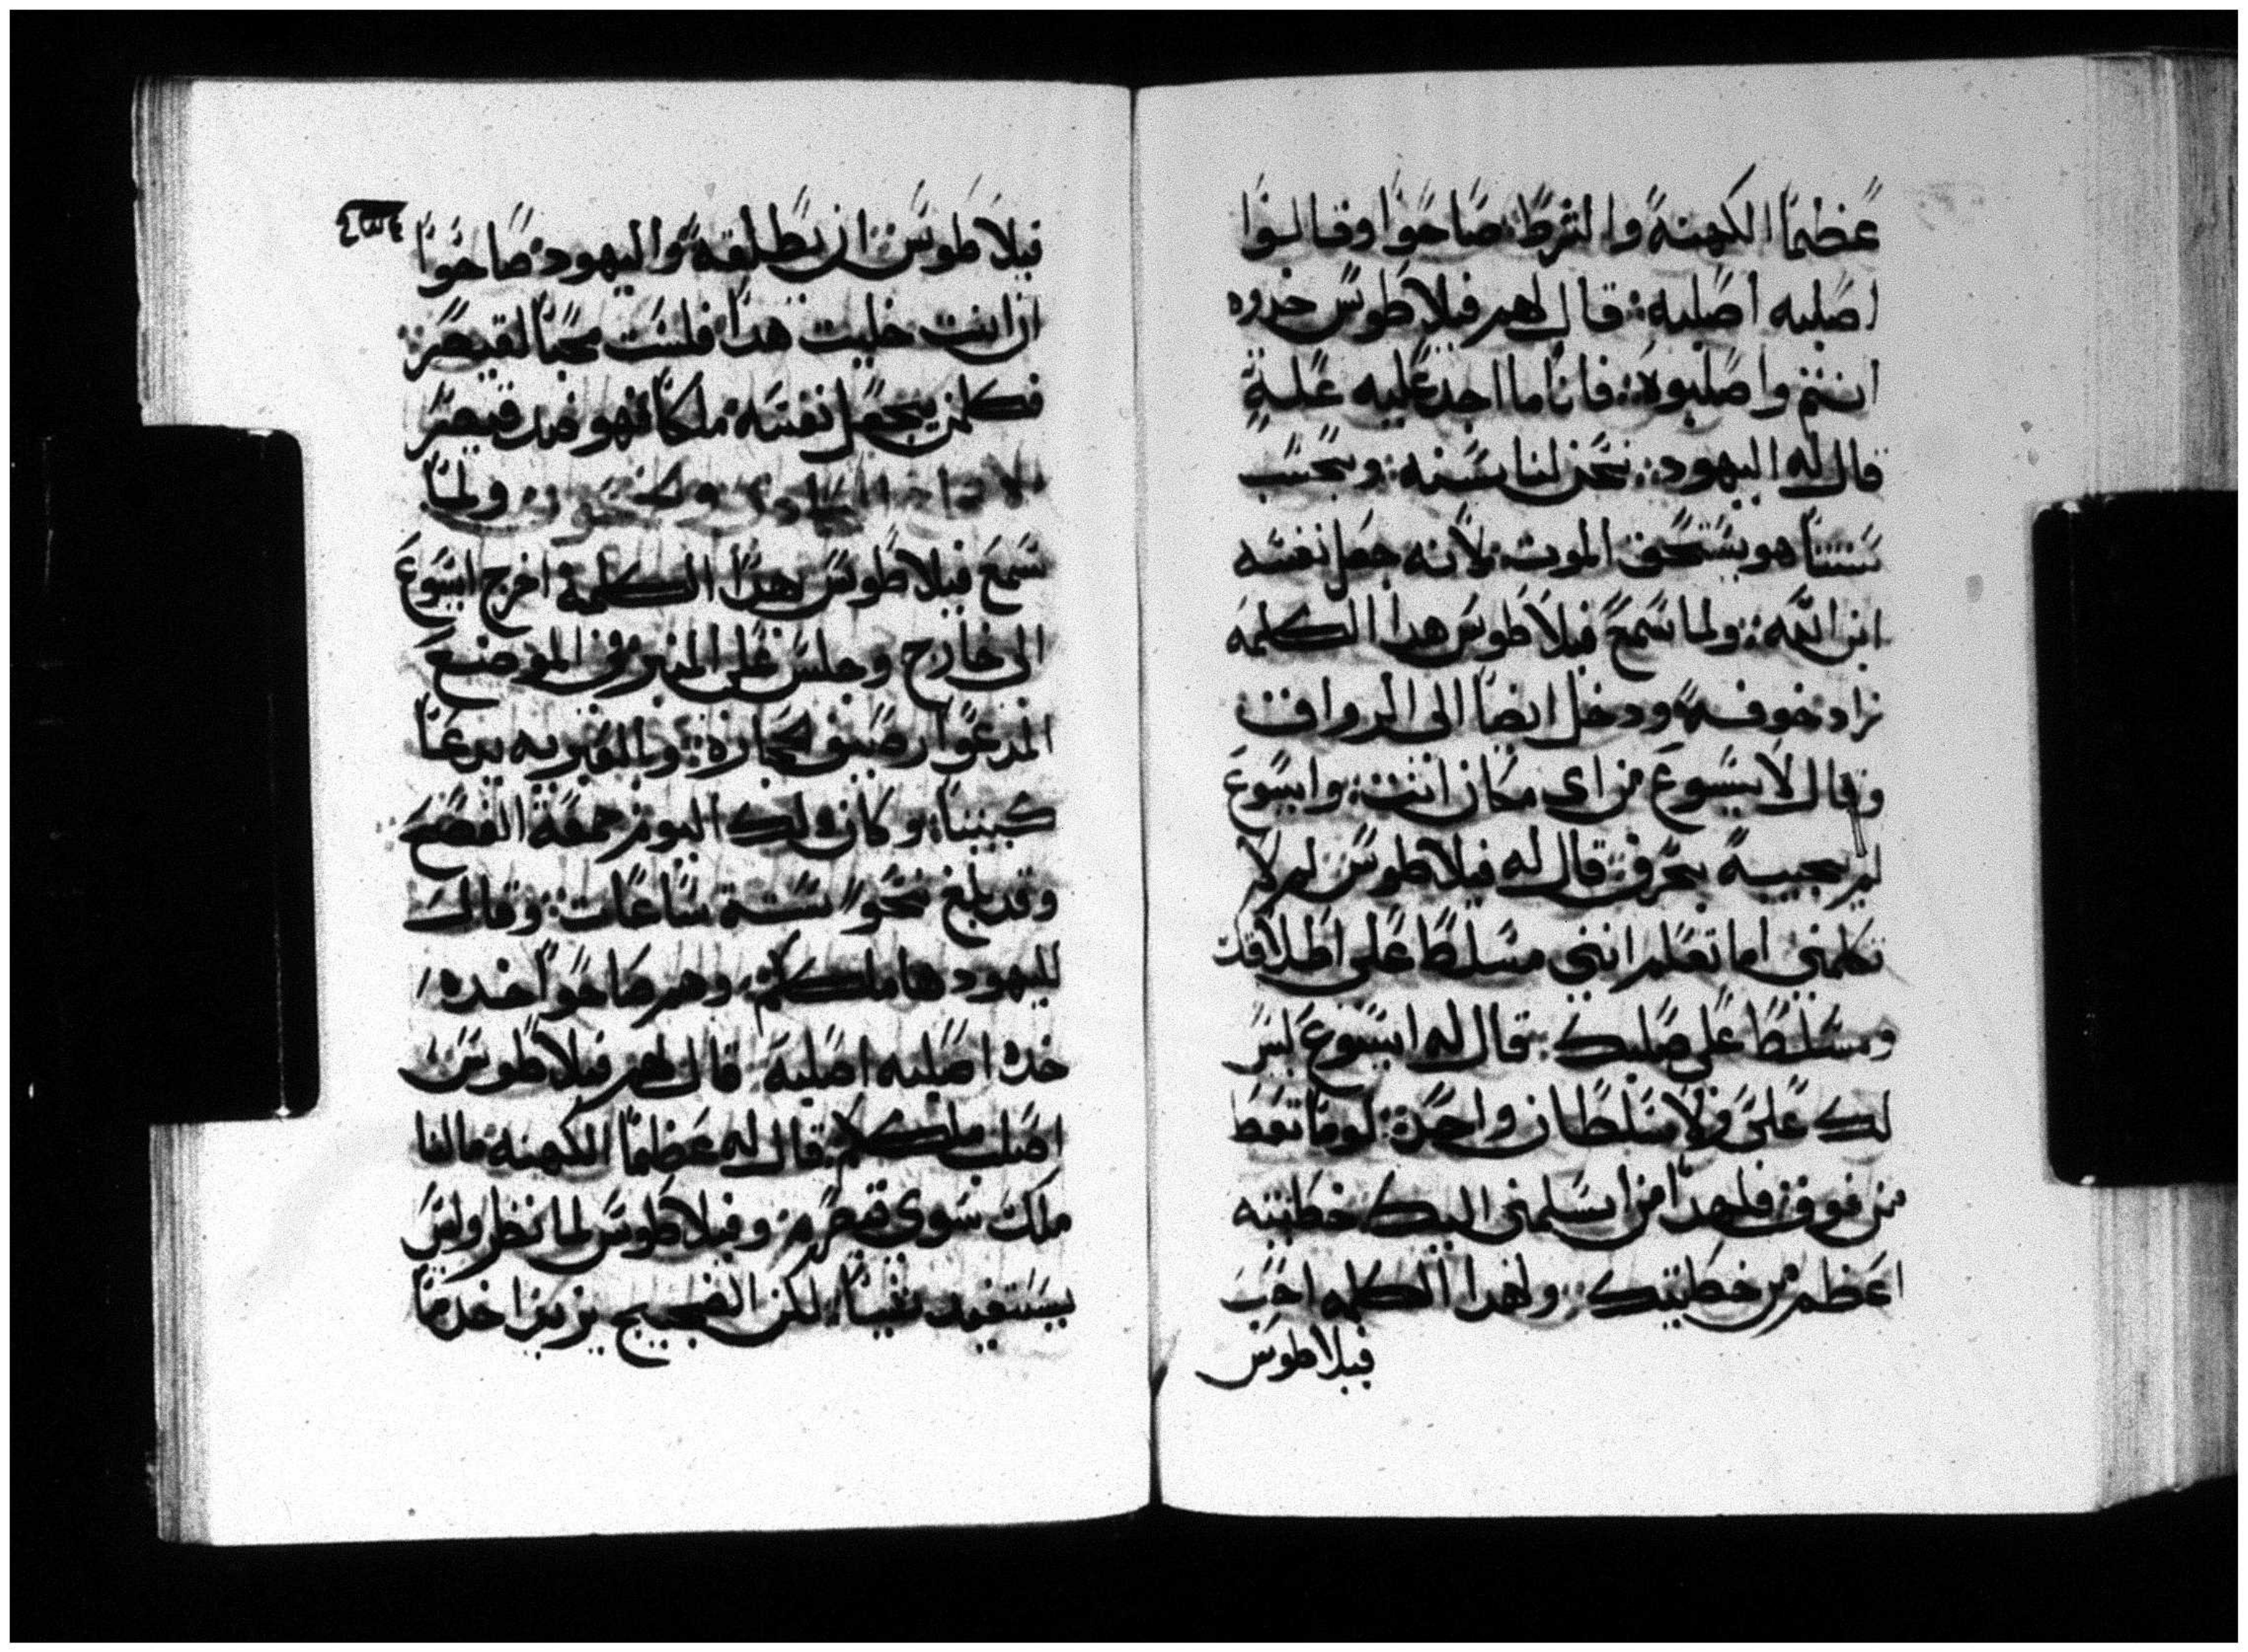 عظما الكهنة والشرط صاحوا وقالوا
اصلبه اصلبه: قال لهم فيلاطوس خدوه
انتم واصلبوه: فانا ما اجد عليه علة
قال له اليهود: نحن لنا سنه: وبحسب
سنتنا هو يستحق الموت لانه جعل نفسه
ابن الله: ولما سمع فيلاطوس هدا الكلمه
زاد خوفه ودخل ايضا الى الرواق
وقال لايسوع من اى مكان انت: وايسوع
لم يجيبه بحرف: قال له فيلاطوس لم لا
تكلمنى اما تعلم اننى مسلطا على اطلاقك
ومسلطا على صلبك: قال له ايسوع ليس
لك على ولا سلطان واحدة: لو ما تعط
من فوق: فلهدا من اسلمنى اليك خطيته
اعظم من خطيتك: ولهدا الكلمه احب
فيلاطوس
فيلاطوس ان يطلقه واليهود صاحوا
ان انت خليت هدا فلست محبا لقيصر:
فكلمن يجعل نفسه ملكا فهو ضد قيصر
ولما
سمع فيلاطوس هدا الكلمة اخرج ايسوع
الى خارج وجلس على المنبر في الموضع
المدعوا رصيف لحجارة: وبالعبريه يدعا
كبيتا: وكان دلك اليوم جمعة الفصح
وقد بلغ نحوا ستة ساعات: وقال
لليهود ها ملككم: وهم صاحوا خده
خده اصلبه اصلبه قال لهم فيلاطوس
اصلب ملككم: قال له عظما الكهنه مالنا
ملك سوى قيصر: وفيلاطوس لما نظر وليس
يستفيد شيئا: لكن الضجيج يزيد اخد ما